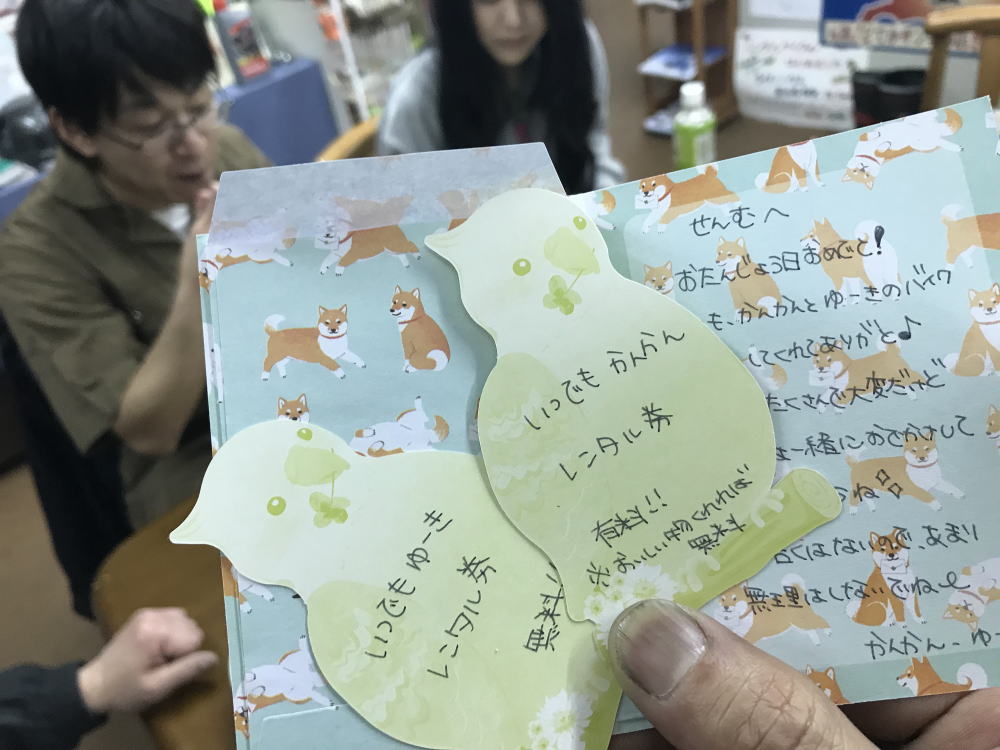 いつでも ゆーき
レンタル券
無料!
いつでも かんかん
レンタル券
有料!!
※おいしいはちくれれば
無料
せんむへ
おたんじょう日おめでと!
も、かんかんとゆーきのバイク
してくれてありがと♪
たくさんで大変だけど
一緒におでかけして
うね
くはないので、あまり
無理はしないでね
かんかん、ゆー